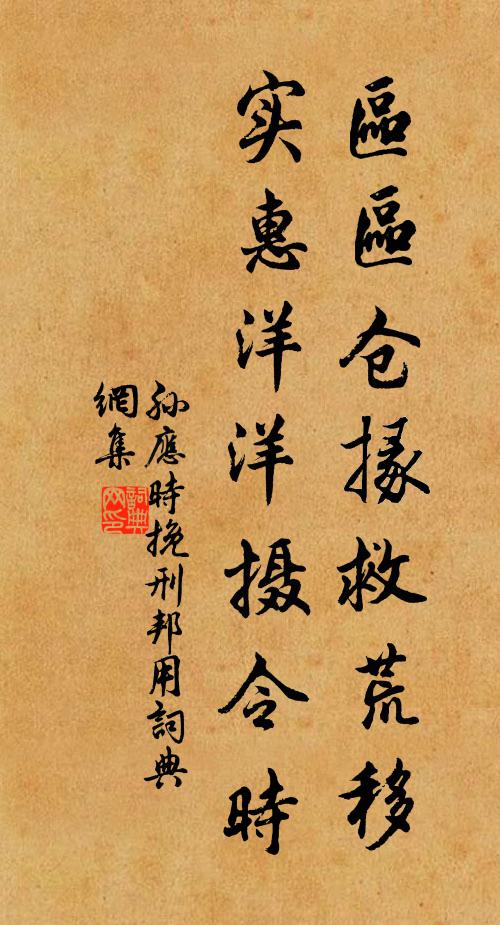 區區仓掾救荒移
实惠洋洋摄令時
孙應時挽刑邦用詞典
網集
詞典
网印